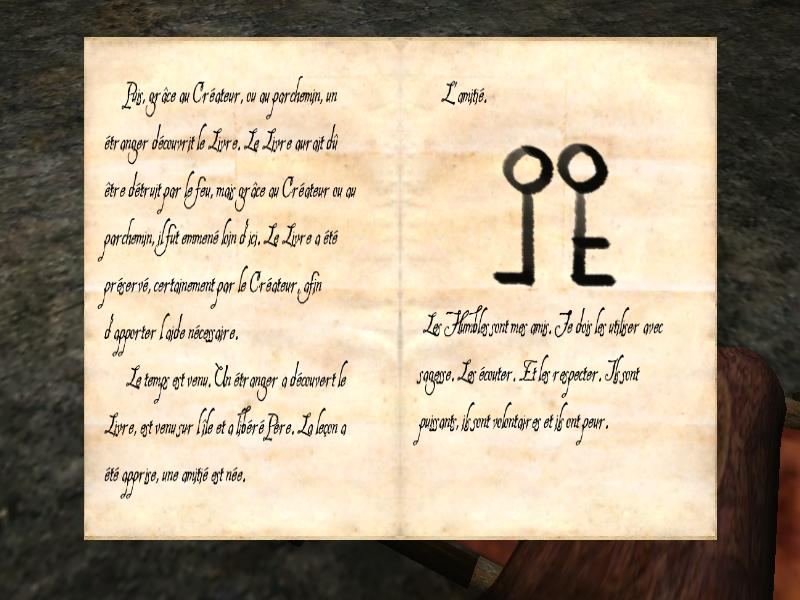 Puis, grâce au Créateur, ou au parchemin, un
étranger découvrit le Livre. Le Livre aurait dû
être détruit par le feu, mais grâce au Créateur ou au
parchemin, il fut emmené loin d'ici. Le Livre a été
préservé, certainement par le Créateur, afin
d'apporter l'aide nécessaire.
Le temps est venu. Un étranger a découvert le
Livre, est venu sur l'île et a libéré Père. La leçon a
été apprise, une amitié est née.
L'amitié.
Les Humbles sont mes amis. Je dois les utiliser avec
sagesse. Les écouter. Et les respecter. Ils sont
puissants, ils sont volontaires et ils ont peur.